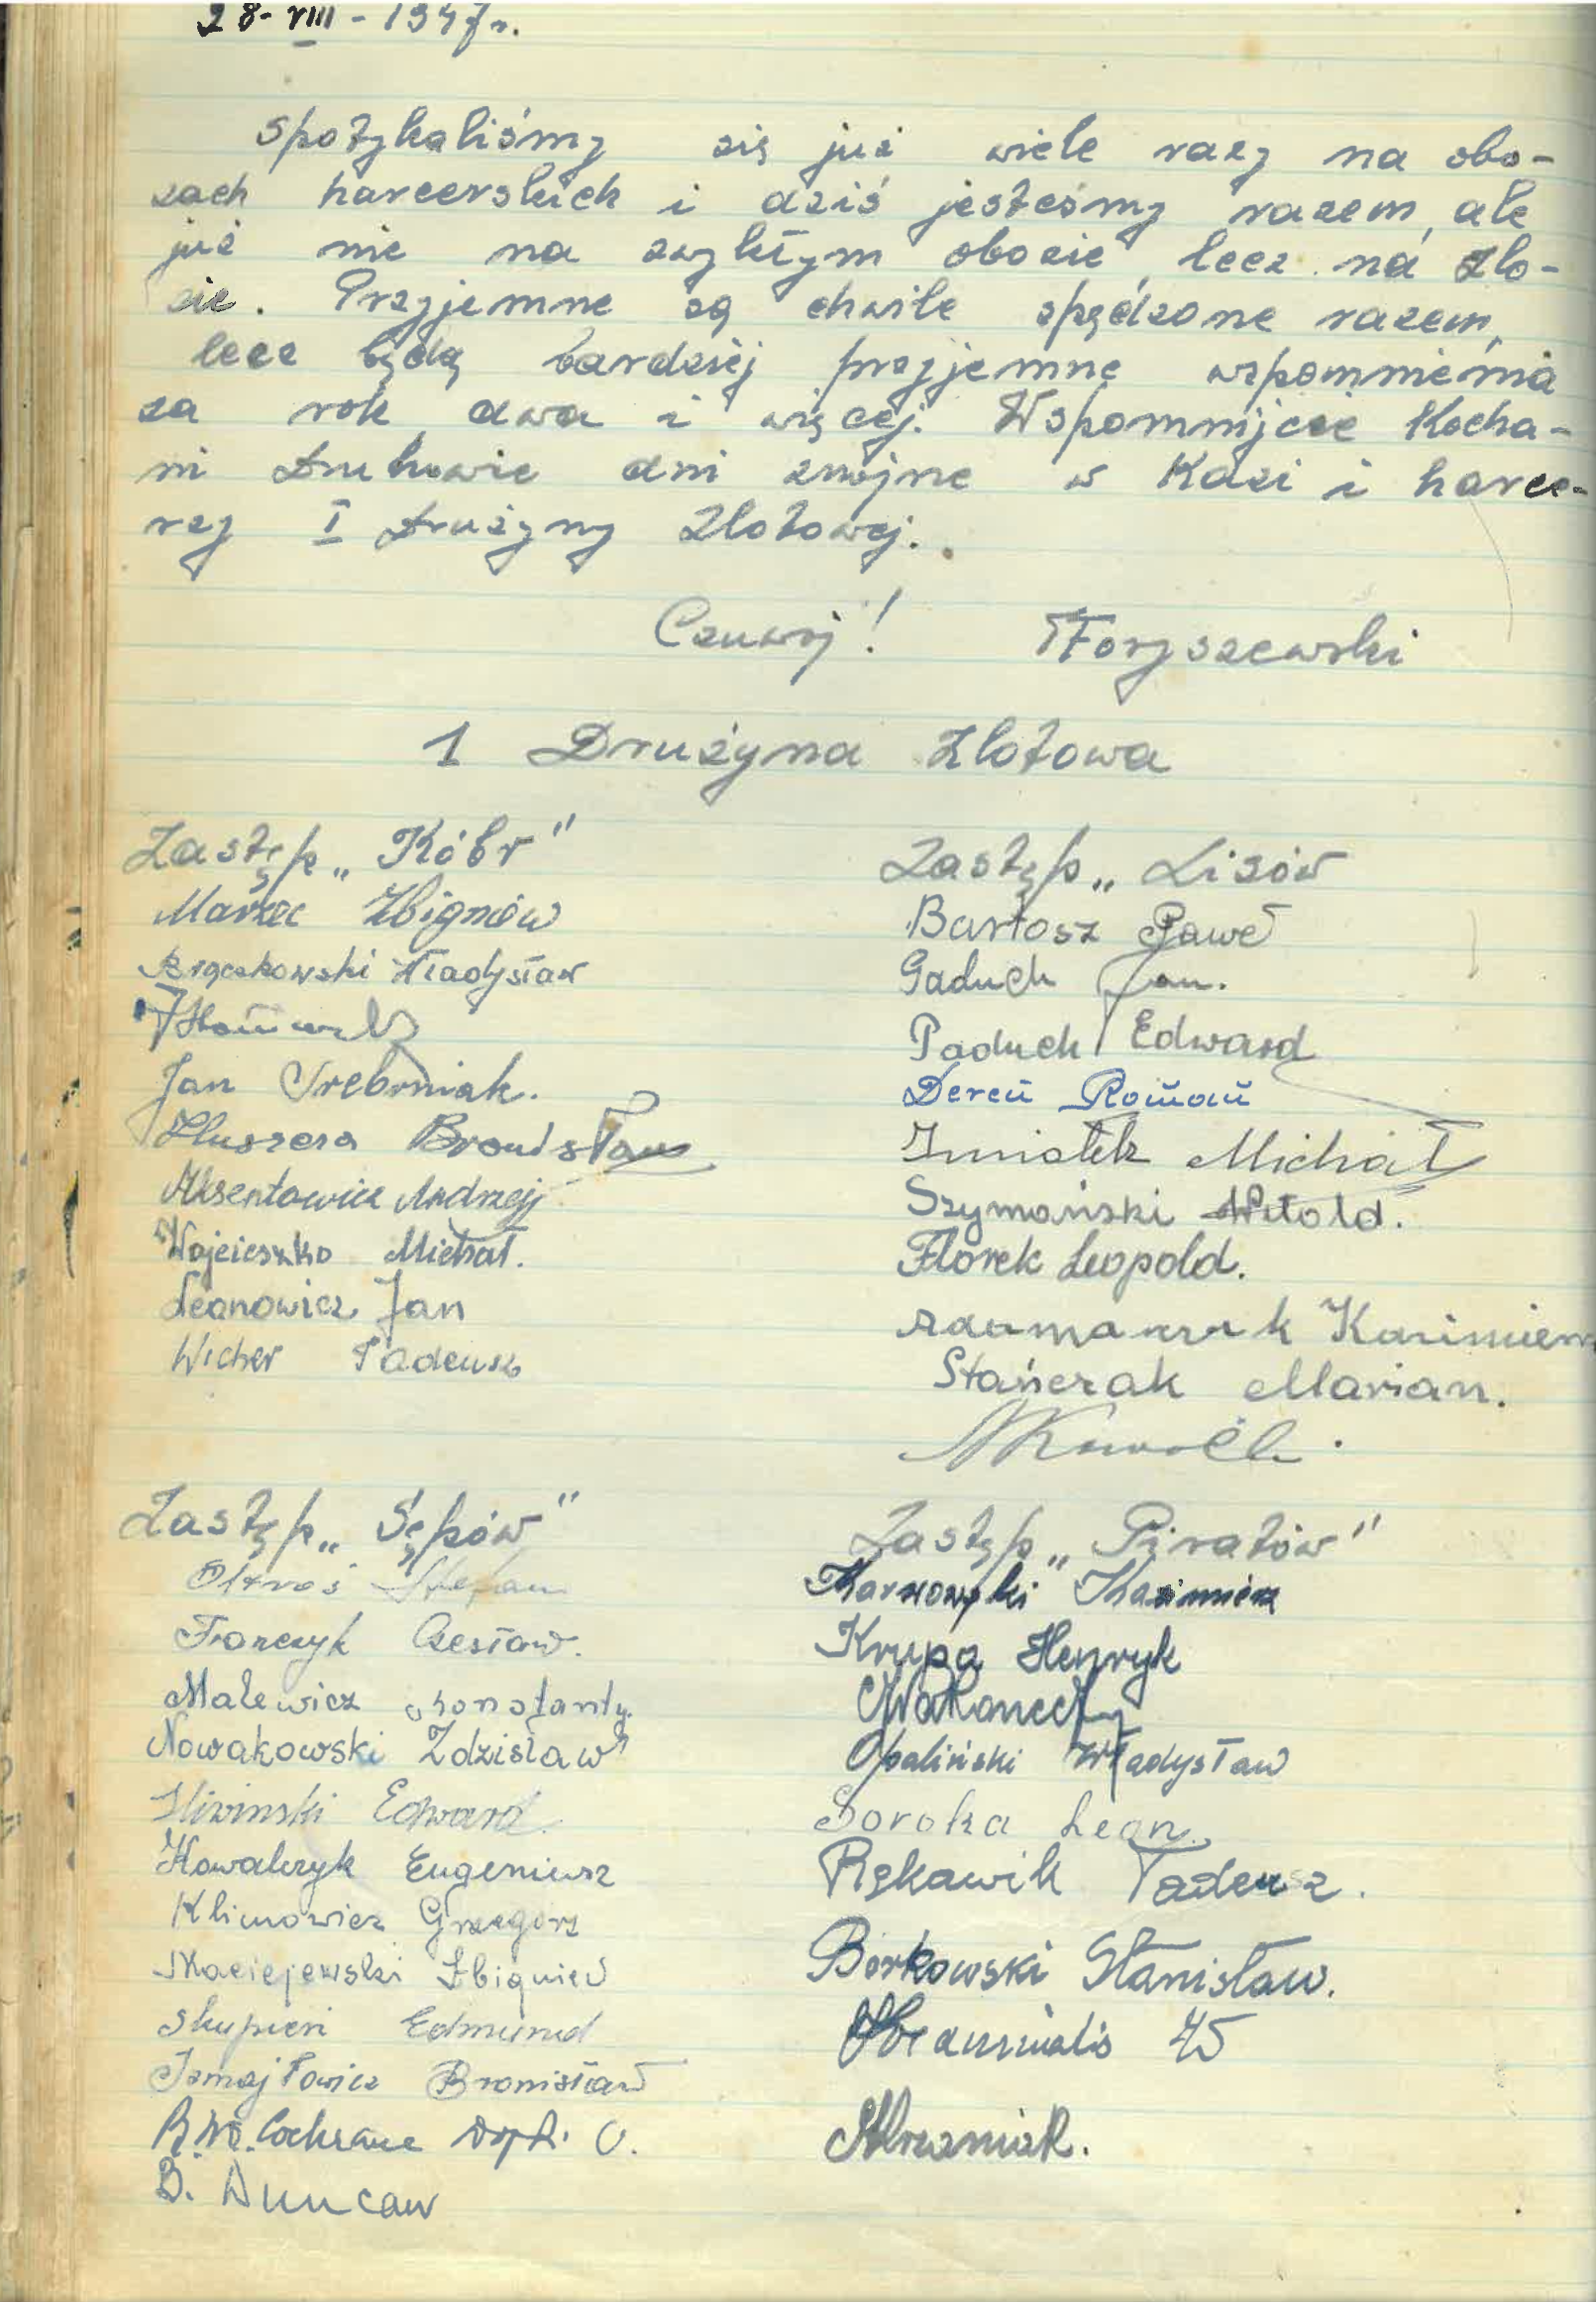 28-VIII-1947r.
Spotykaliśmy się już wiele razy na obo-
zach harcerskich i dziś jesteśmy razem, ale
już nie na zwykłym obozie, lecz na zlo-
cie. Przyjemne są chwile spędzone razem,
lecz będą bardziej przyjemne wspomnienia
za rok, dwa i więcej. Wspomnijcie Kocha-
ni Druhowie dni znojne w Kazi i harce-
rzy I Drużyny Zlotowej.
Czuwaj! Foryszewski
1 Drużyna Zlotowa
Zastęp „Kobr"
Marzec Zbigniew
Władysław
Jan Srebrniak.
Bronisław
Aksentowicz Andrzej
Wojcieszko Michał.
Leonowicz Jan
Wicher Tadeusz
Zastęp „Lisów
Bartosz Paweł
Gaduch Jan.
Paduch Edward
Dereń Roman
Michał
Szymański Witold.
Florek Leopold.
Adamczak Kazimierz
Stańczak Marian.
Zastęp „Sępów"
Stefan
Franczyk Czesław.
Malewicz Konstanty.
Nowakowski Zdzisław
Śliwinski Edward
Kowalczyk Eugeniusz
Klimowicz Grzegorz
Maciejewski Zbigniew
Skupień Edmund
Izmajłowicz Bronisław
Cochrane
B. Duncan
Zastęp „Piratów"
Karnowski Kazimierz
Krupa Henryk
Opaliński Władysław
Soroka Leon.
Rękawik Tadeusz.
Borkowski Stanisław.
45